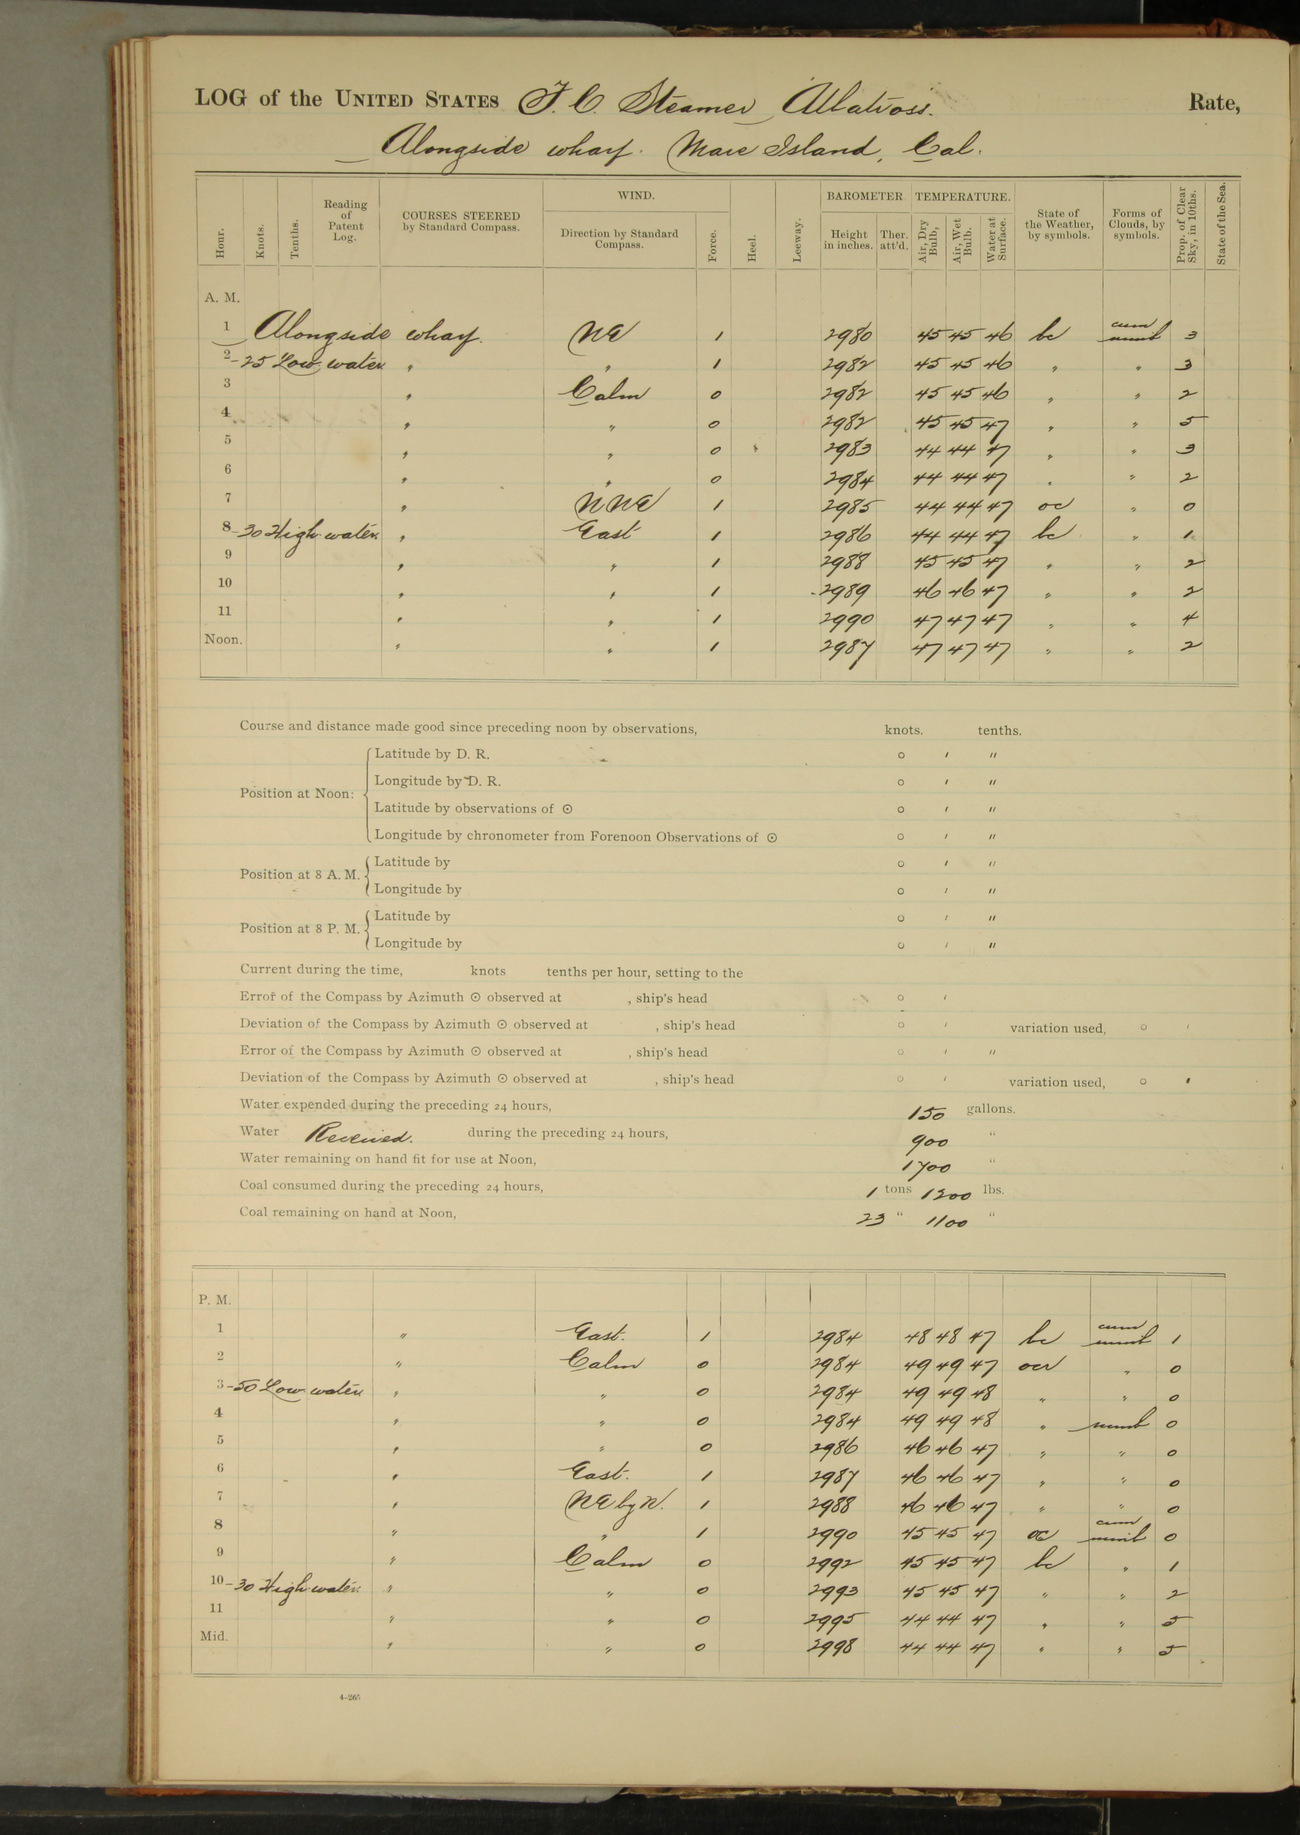 LOG of the UNITED STATES F. C. Steamer Albatross. Rate,
Alongside wharf. Mare Island, Cal.
Hour. Knots. Tenths. Reading of Patent Log. COURSES STEERED by Standard Compass. WIND. Direction by Standard Compass. Force. Heel. Leeway. BAROMETER. Height in inches. Ther. att'd. TEMPERATURE. Air, Dry Bulb, Air, Wet Bulb. Water at Surface. State of the Weather, by symbols. Forms of Clouds, by symbols. Prop. of Clear Sky, in 10ths. State of the Sea.
A. M.
1 Alongside wharf. NE 1 2980 45 45 46 bc cum nimb 3
2-25 Low water " " 1 2982 45 45 46 " " 3
3 " Calm 0 2982 45 45 46 " " 2
4 " " 0 2982 45 45 47 " " 5
5 " " 0 2983 44 44 47 " " 3
6 " " 0 2984 44 44 47 " " 2
7 " NNE 1 2985 44 44 47 oc " 0
8-30 High water. " East 1 2986 44 44 47 bc " 1
9 " " 1 2988 45 45 47 " " 2
10 " " 1 2989 46 46 47 " " 2
11 " " 1 2990 47 47 47 " " 4
Noon. " " 1 2987 47 47 47 " " 2
Course and distance made good since preceding noon by observations, knots. tenths.
Position at Noon:
Latitude by D. R. ° ′ ″
Longitude by D. R. ° ′ ″
Latitude by observations of ☉ ° ′ ″
Longitude by chronometer from Forenoon Observations of ☉ ° ′ ″
Position at 8 A. M.
Latitude by ° ′ ″
Longitude by ° ′ ″
Position at 8 P. M.
Latitude by ° ′ ″
Longitude by ° ′ ″
Current during the time, knots tenths per hour, setting to the
Error of the Compass by Azimuth ☉ observed at , ship's head ° ′
Deviation of the Compass by Azimuth ☉ observed at , ship's head ° ′ variation used, ° ′
Error of the Compass by Azimuth ☉ observed at , ship's head ° ′ ″
Deviation of the Compass by Azimuth ☉ observed at , ship's head ° ′ variation used, ° ′
Water expended during the preceding 24 hours, 150 gallons.
Water Received. during the preceding 24 hours, 900 "
Water remaining on hand fit for use at Noon, 1700 "
Coal consumed during the preceding 24 hours, 1 tons 1200 lbs.
Coal remaining on hand at Noon, 23 " 1100 "
P. M.
1 " East. 1 2984 48 48 47 bc cum nimb 1
2 " Calm 0 2984 49 49 47 ocr " 0
3-50 Low water " " 0 2984 49 49 48 " " 0
4 " " 0 2984 49 49 48 " nimb 0
5 " " 0 2986 46 46 47 " " 0
6 " East. 1 2987 46 46 47 " " 0
7 " NE by N. 1 2988 46 46 47 " " 0
8 " " 1 2990 45 45 47 oc cum nimb 0
9 " Calm 0 2992 45 45 47 bc " 1
10-30 High water. " " 0 2993 45 45 47 " " 2
11 " " 0 2995 44 44 47 " " 5
Mid. " " 0 2998 44 44 47 " " 5
4-265